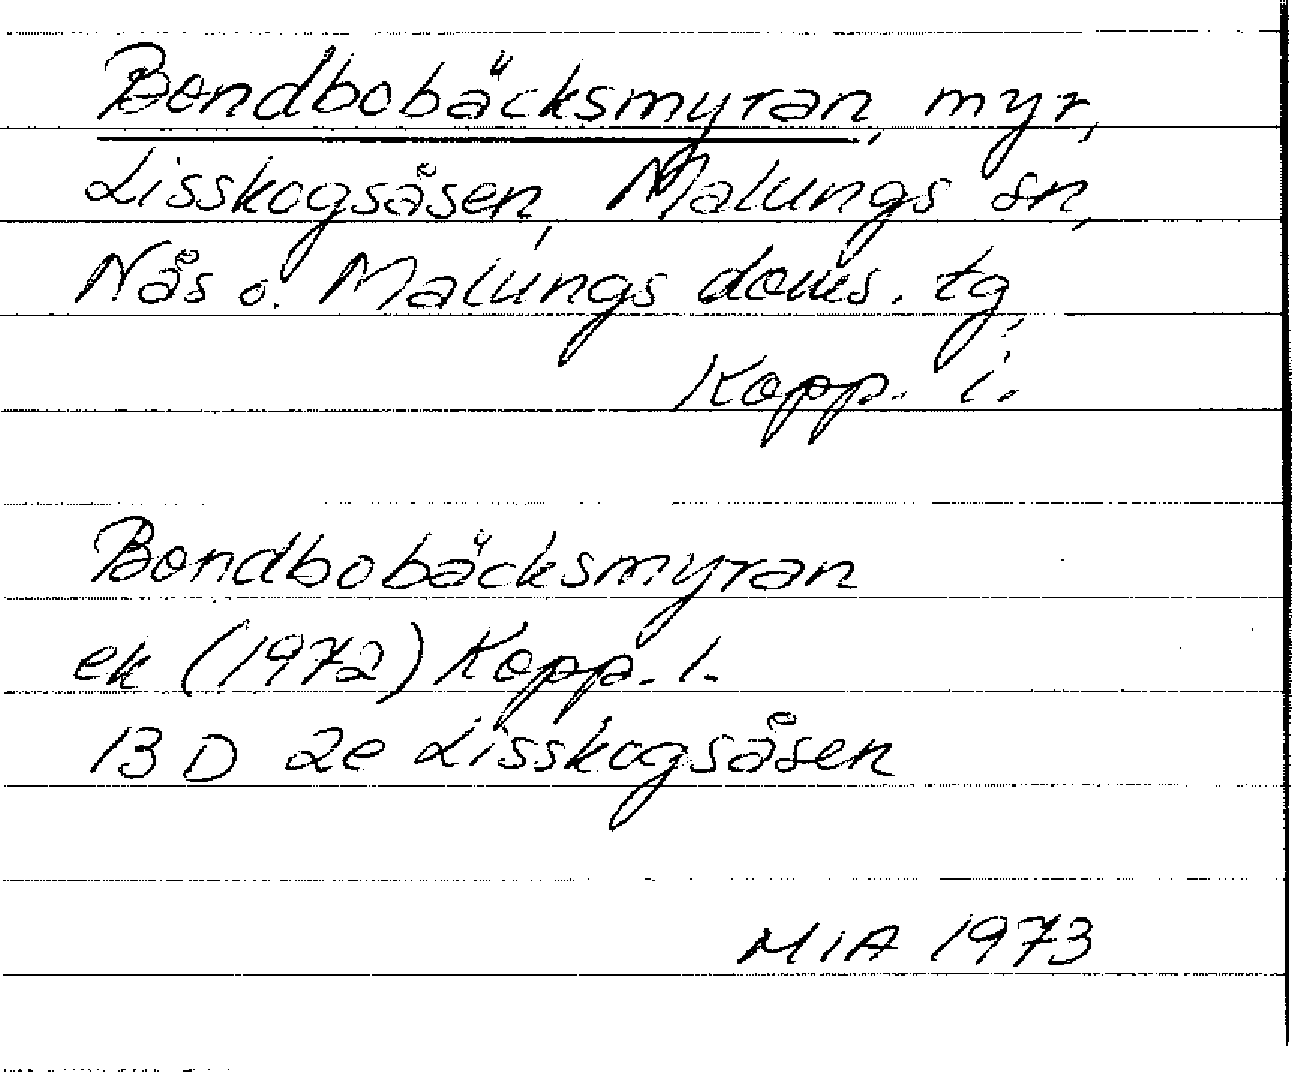 Bondbobäcksmyran, myr,
Lisskogsåsen, Malungs sn,
Nås o. Malungs doms. tg,
Kopp. i.
Bondbobäcksmyran
ek (1972) Kopp. l.
13 D 2e Lisskogsåsen
MIA 1973